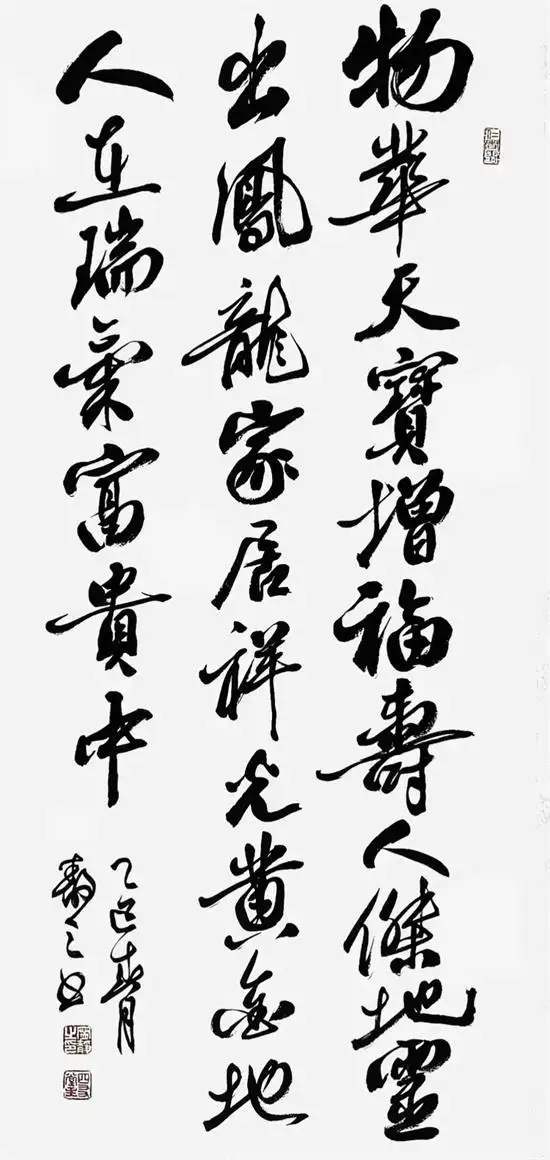 物華天寶增福壽人傑地靈
出鳳龍家居祥光黃金地
人在瑞氣富貴中
乙巳春月
之书